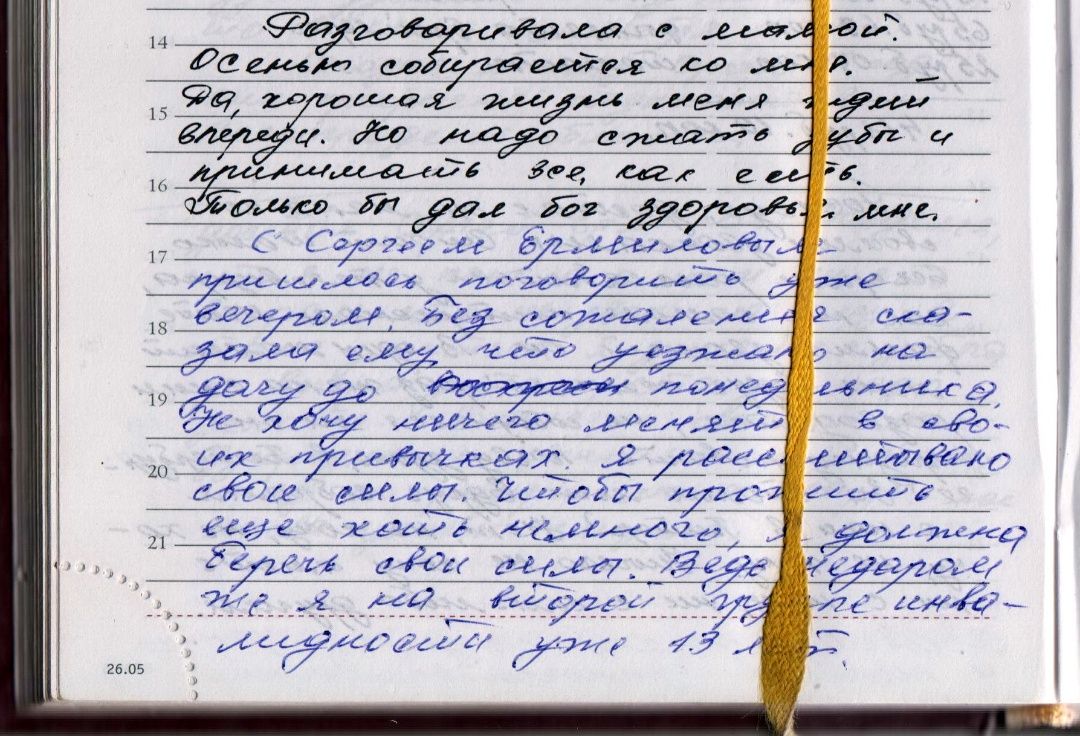 14 Разговаривала с мамой.
Осенью собирается ко мне.
Да, хорошая жизнь меня ждет
15 впереди. Но надо сжать зубы и
принимать все, как есть.
16 Только бы дал бог здоровья мне.
С Сергеем Ермиловым
17 пришлось поговорить уже
вечером. Без сожаления ска-
18 зала ему, что уезжаю на
дачу до понедельника.
19 Не хочу ничего менять в сво-
их привычках. Я рассчитываю
20 свои силы. Чтобы прожить
еще хоть немного, я должна
21 беречь свои силы. Ведь недаром
же я на второй группе инва-
лидности уже 13 лет.
26.05